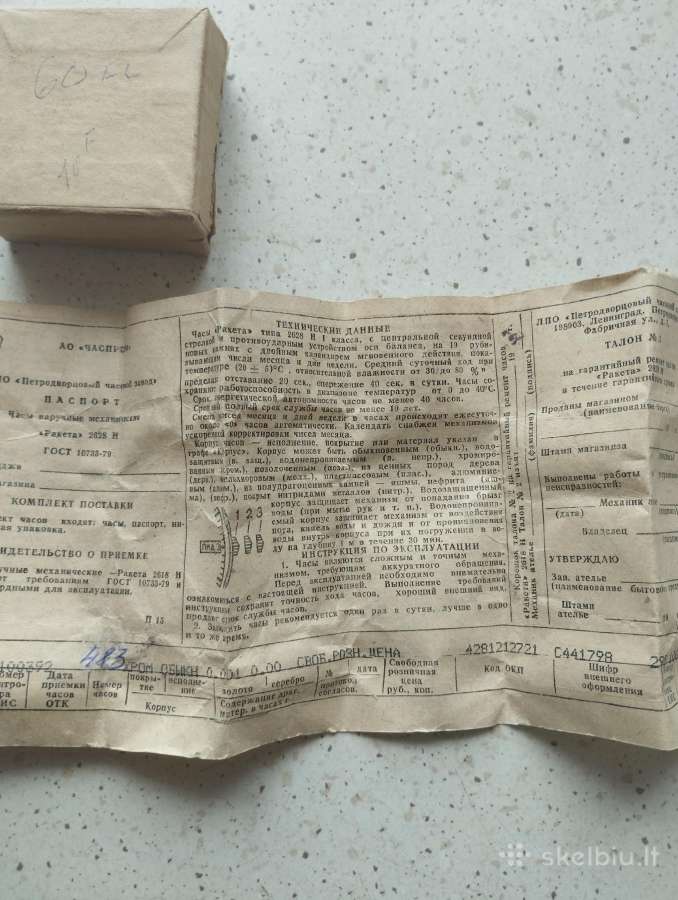 60
10
АО «ЧАСПРОМ
«Петродворцовый часовой завод»
ПАСПОРТ
Часы наручные механические
«Ракета» 2628 Н
ГОСТ 10733-79
КОМПЛЕКТ ПОСТАВКИ
часов входит: часы, паспорт, ин-
упаковка.
О ПРИЕМКЕ
механические «Ракета» 2628 Н
требованиям ГОСТ 10733-79 и
для эксплуатации.
П 15
ТЕХНИЧЕСКИЕ ДАННЫЕ
Часы «Ракета» типа 2628 Н I класса, с центральной секундной
стрелкой и противоударным устройством оси баланса, на 19 рубиновых камнях с двойным календарем мгновенного действия, пока-
зывающим числа месяца и дни недели. Средний суточный ход при
температуре (20 ± 5)°С, относительной влажности от 30 до 80 % в
пределах отставание 20 сек, опережение 40 сек. в сутки. Часы со-
храняют работоспособность в диапазоне температур от 0 до 40°С.
Срок энергетической автономности часов не менее 40 часов.
Средний полный срок службы часов не менее 10 лет.
Смена чисел месяца и дней недели в часах происходит ежесуточ-
но около «0» часов автоматически. Календарь снабжен механизмом
ускоренной корректировки чисел месяца.
Корпус часов — исполнение, покрытие или материал указан в
графе «Корпус». Корпус может быть обыкновенным (обыкн.), водо-
защитным (в. защ.), водонепроницаемым (в. непр.), хромиро-
ванным (хром.), позолоченным (позл.), из ценных пород дерева
(дер.), мельхиоровым (мелх.), пластмассовым (плас.), алюминие-
вым (алюм.), из полудрагоценных камней — яшмы, нефрита (яш-
ма), (неф.), покрыт нитридами металлов (нитр.). Водозащищенный
корпус защищает механизм от попадания брызг
воды (при мытье рук и т. п.). Водонепроница-
емый корпус защищает механизм от воздействия
пота, капель воды и дождя и от проникновения
воды внутрь корпуса при их погружении в во-
ду на глубину 1 м в течение 30 мин.
1 2 3
ИНСТРУКЦИЯ ПО ЭКСПЛУАТАЦИИ
1. Часы являются сложным и точным меха-
низмом, требующим аккуратного обращения.
Перед эксплуатацией необходимо внимательно
ознакомиться с настоящей инструкцией. Выполнение требований
инструкции сохранит точность хода часов, хороший внешний вид,
продлит срок службы часов.
2. Заводить часы рекомендуется один раз в сутки, лучше в одно
и то же время.
Корешок талона № 2 на гарантийный ремонт часов
«Ракета» 2628 Н Талон № 2 изъят
19 г.
Механик ателье
(фамилия)
(подпись)
ЛПО «Петродворцовый часовой
198903, Ленинград,
Фабричная ул.,
ТАЛОН №
на гарантийный ремонт
«Ракета» 2628 Н
в течение гарантийного
Проданы магазином
(наименование
Штамп магазина
Выполнены работы
неисправностей:
Механик
(дата)
Владелец
УТВЕРЖДАЮ
Зав. ателье
(наименование бытового
Штамп
ателье
100392 483 ХРОМ ОБЫКН 0.001 0.00 СВОБ.РОЗН.ЦЕНА 4281212721 С441798
Дата приемки часов ОТК
Номер часов
покры-
тие
исполне-
ние
Корпус
золото
серебро
Содержание драг.
матер. в часах г.
№ дата
протокол
согласов.
Свободная
розничная
цена
руб., коп.
Код ОКП
Шифр
внешнего
оформления
skelbiu.lt